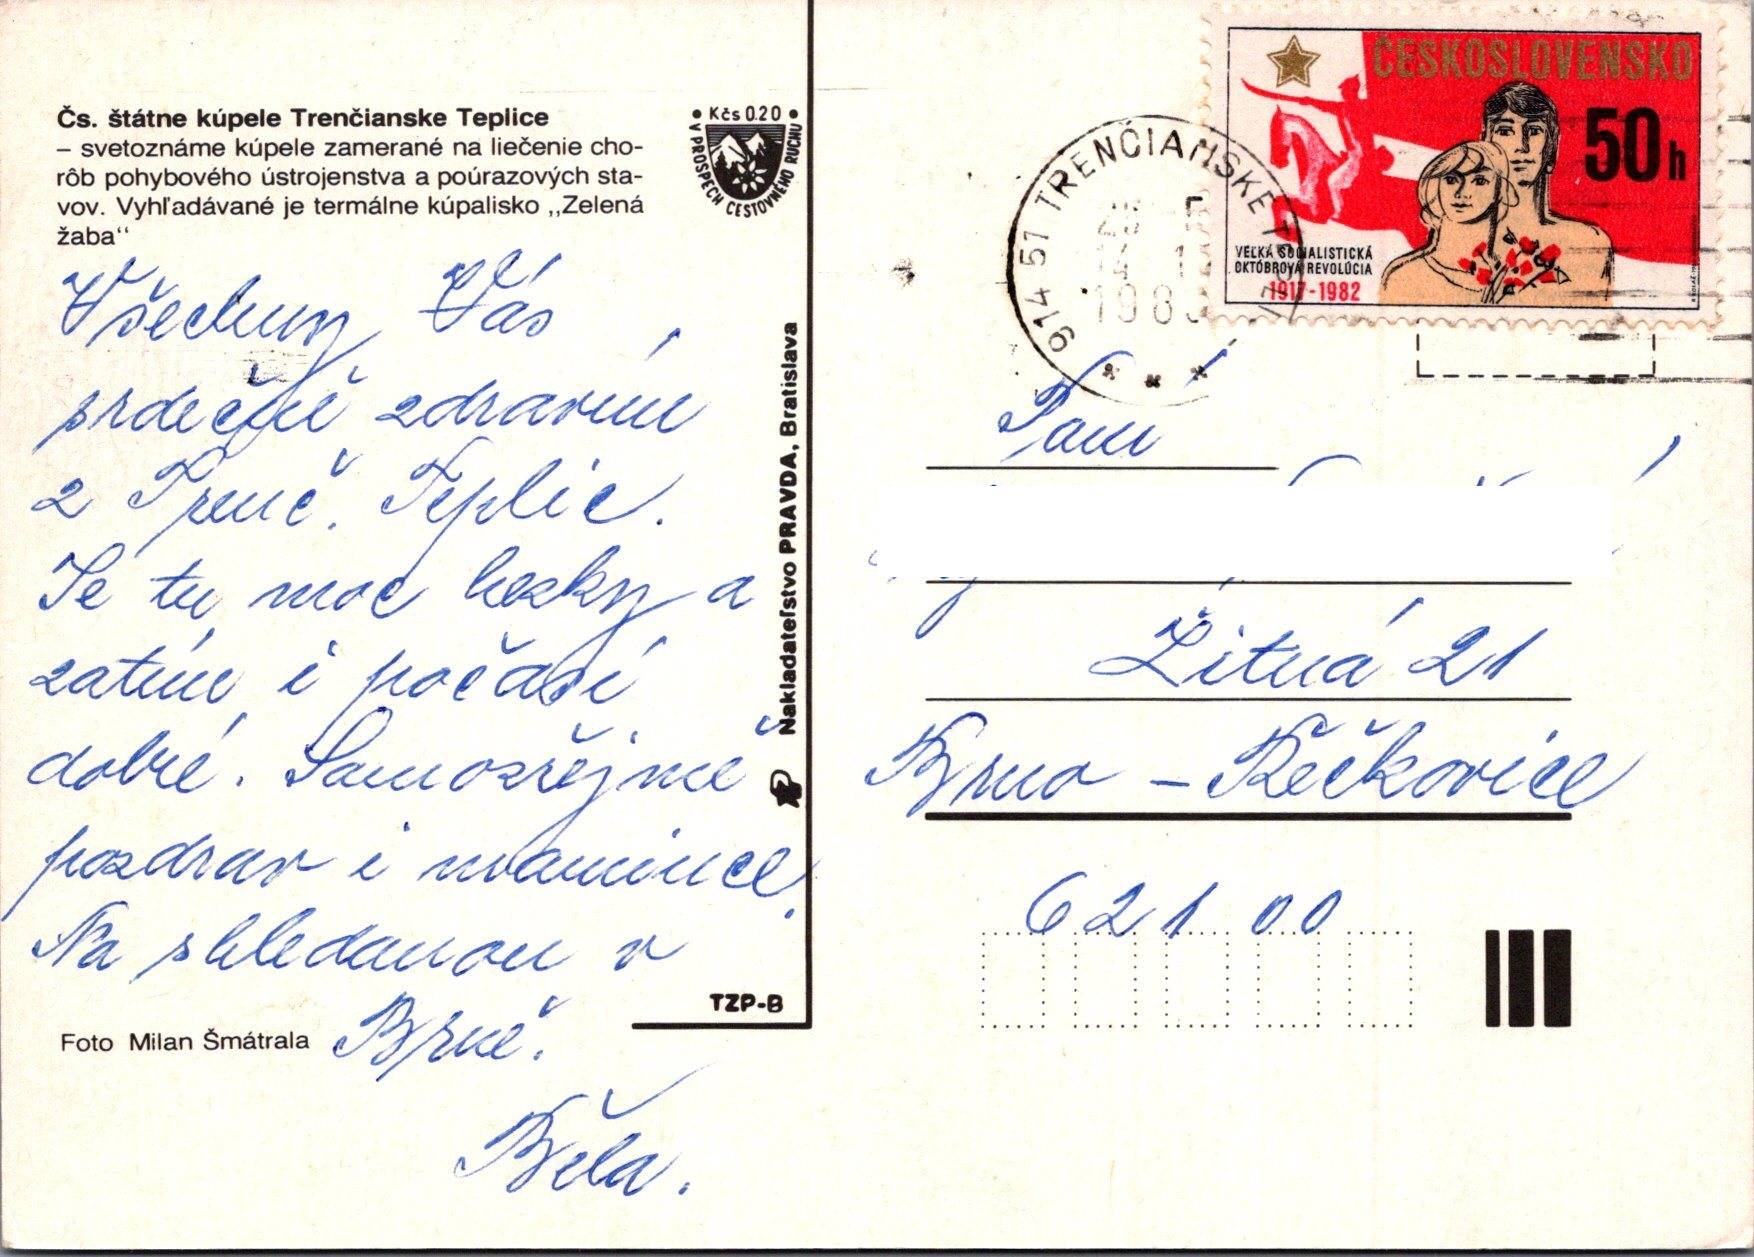 Čs. štátne kúpele Trenčianske Teplice
– svetoznáme kúpele zamerané na liečenie cho-
rôb pohybového ústrojenstva a poúrazových sta-
vov. Vyhľadávané je termálne kúpalisko ,,Zelená
žaba"
• Kčs 0.20 •
V PROSPECH CESTOVNÉHO RUCHU
Všechny Vás
srdečně zdravím
z Trenč. Teplic.
Je tu moc hezky a
zatím i počasí
dobré. Samozřejmě
pozdrav i mamince.
Na shledanou v
Brně.
Běla.
Foto Milan Šmátrala
TZP-B
Nakladateľstvo PRAVDA, Bratislava
ČESKOSLOVENSKO
50 h
VEĽKÁ SOCIALISTICKÁ
OKTÓBROVÁ REVOLÚCIA
1917-1982
914 51 TRENČIANSKE
Paní
Žitná 21
Brno – Řečkovice
621 00